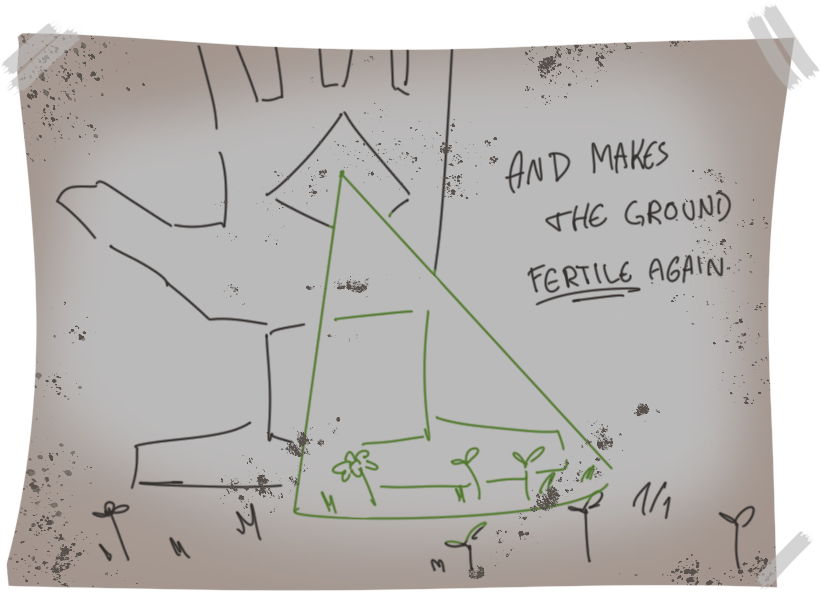 AND MAKES
THE GROUND
FERTILE AGAIN.